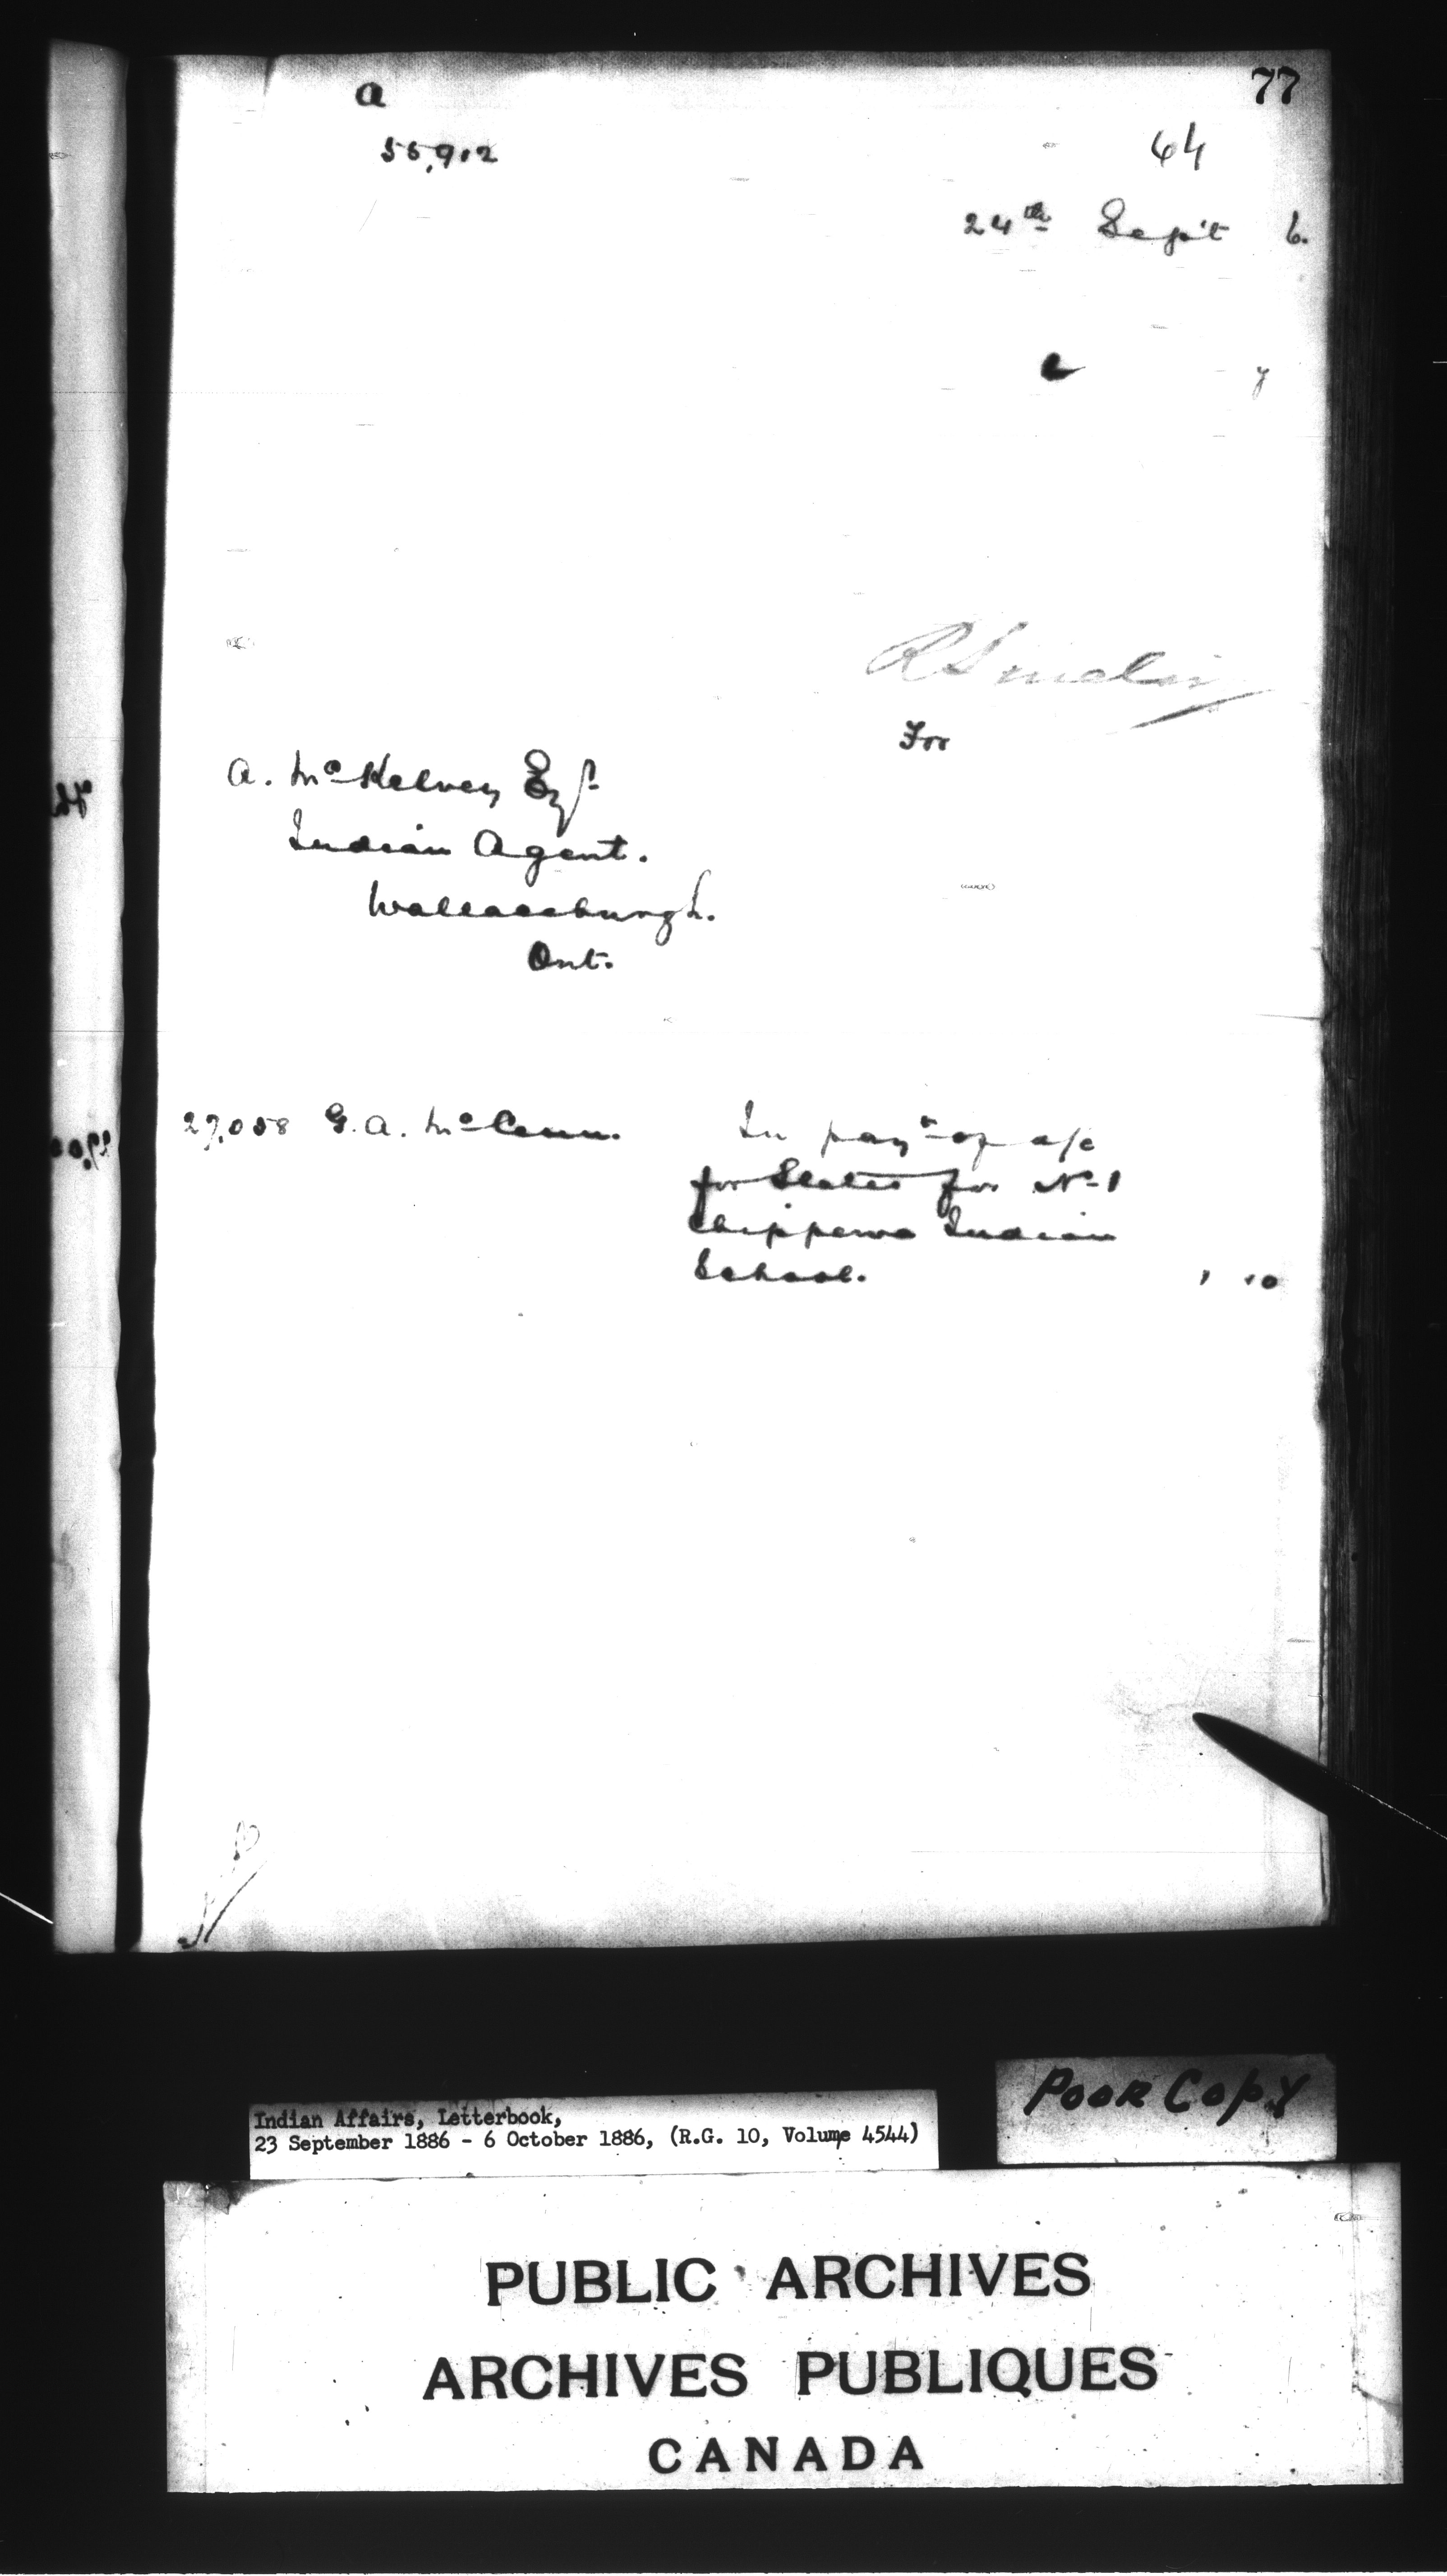 a
77
55,912
64
24th Sept 6.
R Sinclair
For
A. McKelvey Esqr
Indian Agent.
Wallaceburgh.
Ont.
27,058 G. A. McCann. In payt of a/c
for Slates for No 1
Chippewa Indian
School. 1 10
Indian Affairs, Letterbook,
23 September 1886 - 6 October 1886, (R.G. 10, Volume 4544)
POOR COPY
PUBLIC ARCHIVES
ARCHIVES PUBLIQUES
CANADA